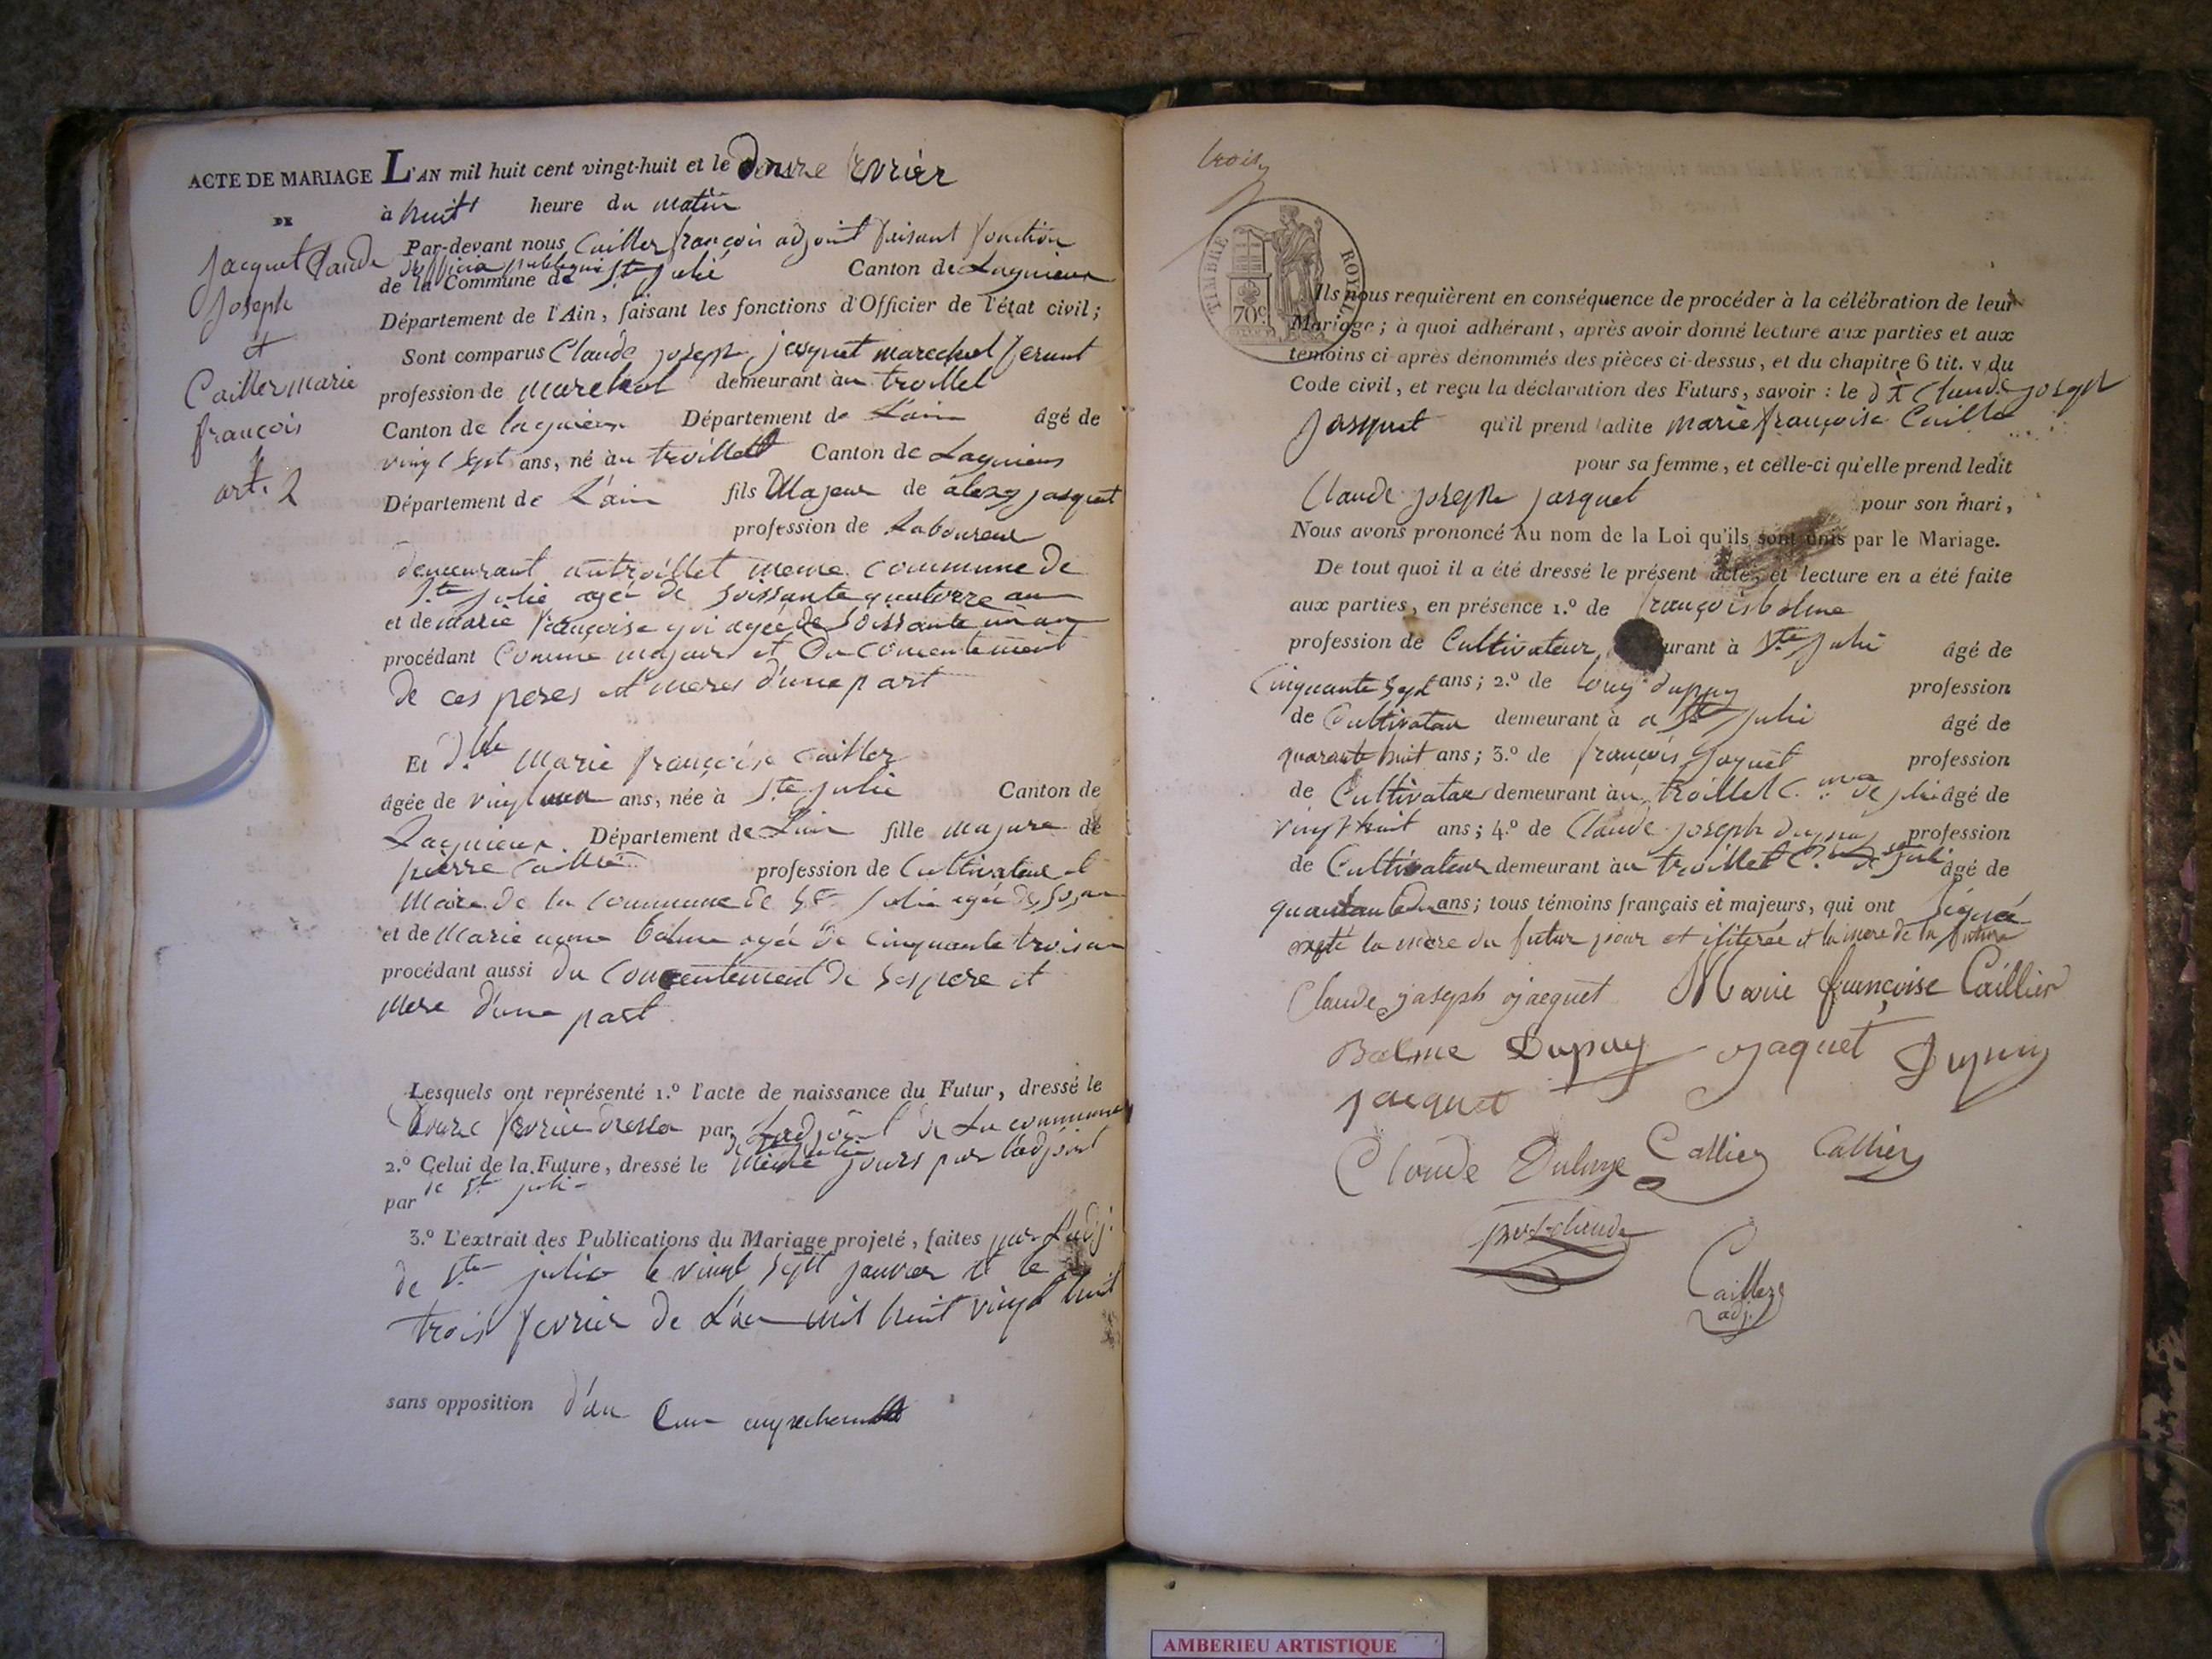 ACTE DE MARIAGE
DE
Jacquet Claude
Joseph
et
Cailler marie
françois
art. 2
L'AN mil huit cent vingt-huit et le fevrier
à huit heure du matin
Par-devant nous Cailler françois adjoint faisant fonction
de la Commune de Ste julie Canton de Lagnieux
Département de l'Ain, faisant les fonctions d'Officier de l'état civil;
Sont comparus Claude joseph jasquet marechal ferant
profession de marechal demeurant àu troillet
Canton de lagnieux Département de L'ain âgé de
vingt sept ans, né àu troillet Canton de Lagnieux
Département de L'ain fils Majeur de jasquet
profession de Laboureur
demeurant autroillet meme commune de
Ste julie agée de soissante quatorze an
et de marie françoise agée de soissante un an
procédant Comme majeur et Du consentement
De ces peres et meres d'une part
Et Dlle Marie françoise Cailler
âgée de ans, née à Ste julie Canton de
Lagnieux Département de L'ain fille majure de
pierre profession de Cultivateur et
Maire de la commune de Ste julie agée de 50 an
et de Marie balme agée de cinquante trois an
procédant aussi du consentement de ses pere et
Mere d'une part
Lesquels ont représenté 1.º l'acte de naissance du Futur, dressé le
fevrier par Ladjoint de La commune
2.º Celui de la Future, dressé le meme jours par l'adjoint
par de Ste julie
3.º L'extrait des Publications du Mariage projeté, faites par L'adj.
de Ste julie le vingt sept janvier et le
trois fevrier de L'an mil huit vingt huit
sans opposition d'au
trois
TIMBRE ROYAL
70c
Ils nous requièrent en conséquence de procéder à la célébration de leur
Mariage; à quoi adhérant, après avoir donné lecture aux parties et aux
témoins ci-après dénommés des pièces ci-dessus, et du chapitre 6 tit. v du
Code civil, et reçu la déclaration des Futurs, savoir: le dt Claude joseph
Jasquet qu'il prend ladite marie françoise Caille
pour sa femme, et celle-ci qu'elle prend ledit
Claude joseph jasquet pour son mari,
Nous avons prononcé Au nom de la Loi qu'ils sont unis par le Mariage.
De tout quoi il a été dressé le présent acte, et lecture en a été faite
aux parties, en présence 1.º de françois balme
profession de Cultivateur urant à Ste julie âgé de
Cinquante sept ans; 2.º de louis dupuy profession
de Cultivateur demeurant à a Ste julie âgé de
quarante huit ans; 3.º de françois Jaquet profession
de Cultivateur demeurant àu troillet âgé de
vingt huit ans; 4.º de Claude joseph dupuy profession
de Cultivateur demeurant àu troillet âgé de
ans; tous témoins français et majeurs, qui ont signé
la mere du futur pour et la mere de la future
Claude joseph jacquet Marie françoise Caillier
Balme Dupuy Jaquet Dupuy
jacquet
Claude Callier Callier
Cailler
adj.
AMBERIEU ARTISTIQUE